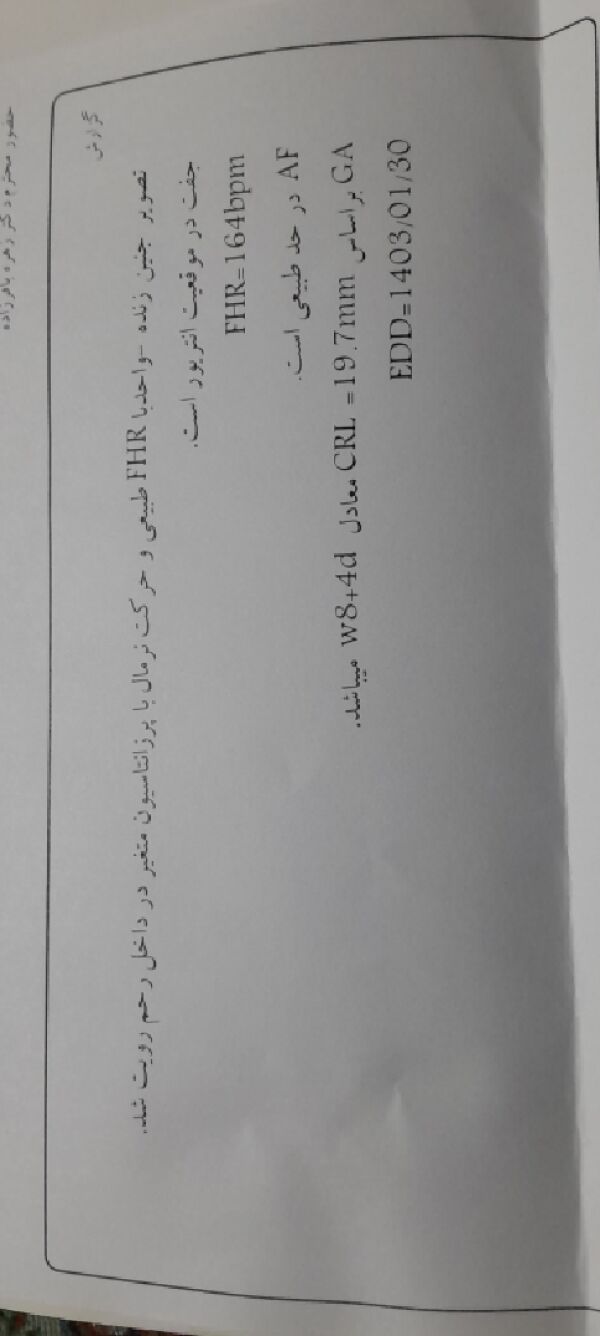 حضور محترم دکتر زهره باقرزاده
گزارش
تصویر جنین زنده -واحدبا FHR طبیعی و حرکت نرمال با پرزانتاسیون متغیر در داخل رحم رویت شد.
جفت در موقعیت انتریور است.
FHR=164bpm
AF در حد طبیعی است.
GA براساس CRL =19.7mm معادل w8+4d میباشد.
EDD=1403/01/30